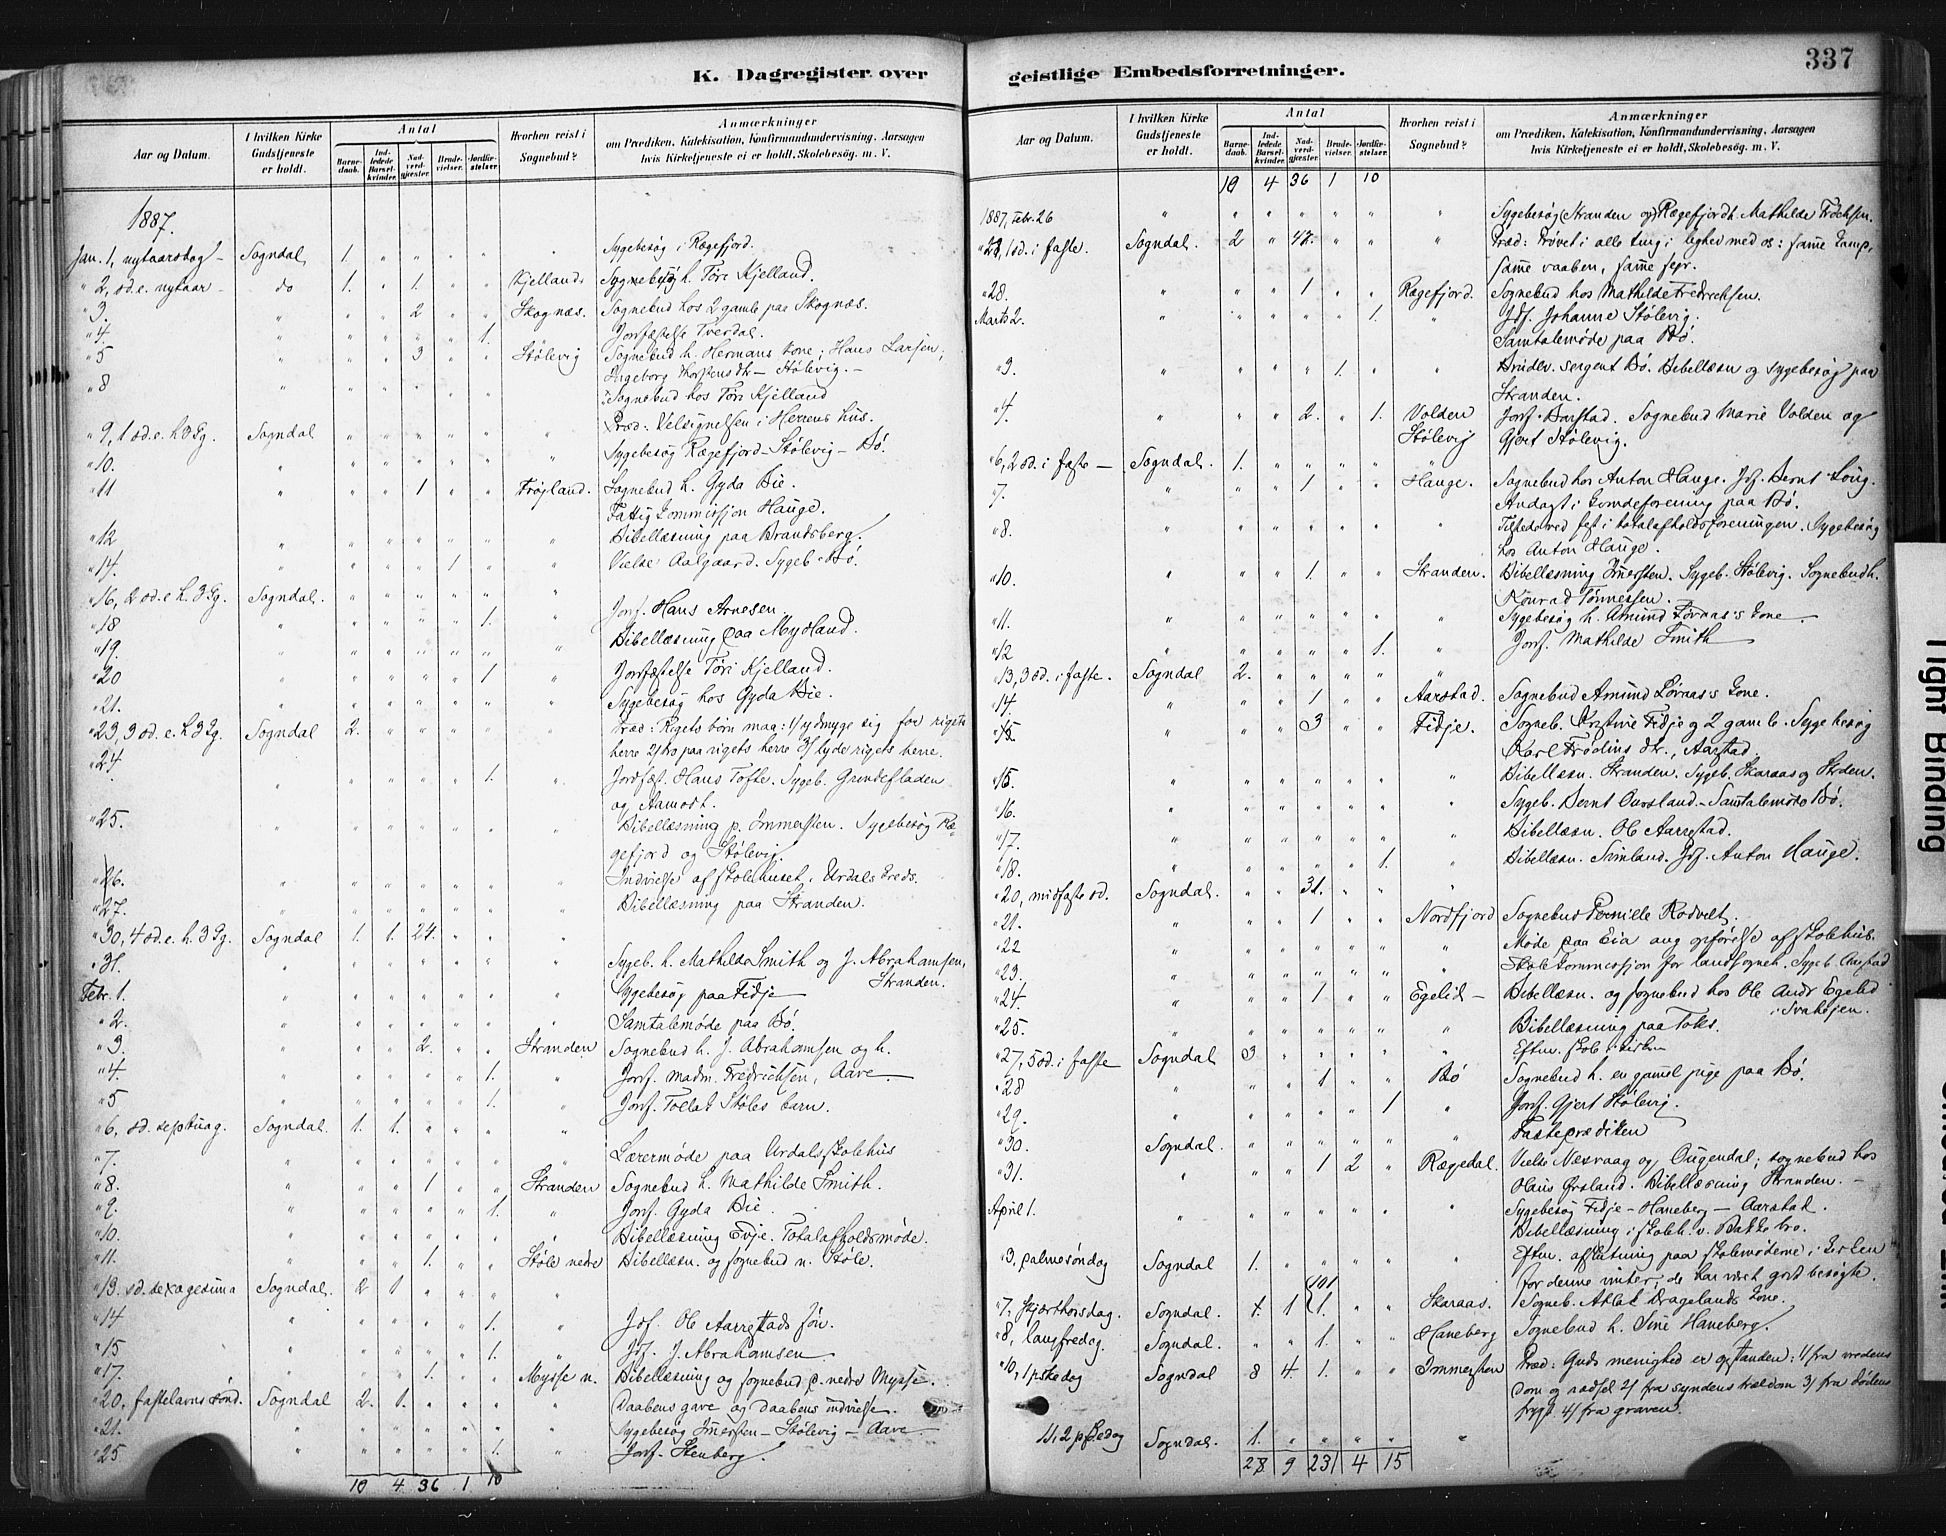 337
K. Dagregister over geistlige Embedsforretninger.
Aar og Datum.
I hvilken Kirke Gudstjeneste er holdt.
Antal
Barnedaab.
Indledede Barselkvinder.
Nadverdgjæster.
Brudevielser.
Jordfæstelser.
Hvorhen reist i Sognebud?
Anmærkninger
om Prædiken, Katekisation, Konfirmandundervisning, Aarsagen
hvis Kirketjeneste ei er holdt, Skolebesøg. m. V.
1887.
Jan. 1, nytaarsdag - Sogndal 1. " " " " " Sygebesøg i Rægefjord.
" 2, sd. e. nytaar - do 1. " 1. " " Kjelland Sygnebesøg h. Tøri Kjelland.
" 3. " " " 2 " " Skognæs. Sognebud hos 2 gamle paa Skognæs.
" 4. " " " " " 1. Jordfæstelse Tverdal.
" 5 " " " 3 " " Stølevig Sognebud h. Hermans kone; Hans Larsen;
Ingeborg - Stølevig. -
" 8 " " " " " Sognebud hos Tøri Kjelland
Præd: Velsignelsen i Herrens hus.
" 9, 1 sd. e. h3Kg. Sogndal " " " " " "
" 10. " " " " " " " Sygebesøg Rægefjord - Stølevig - Bø.
" 11 " " " 1 " " Frøjland. Sognebud h. Gyda Bie.
Fattigkommission Hauge.
" 12 " " " " " " " Bibellæsning paa Brandsberg.
" 14. " " " " 1 " " Vielse Aalgaard. Sygeb. Bø.
" 16, 2 sd. e. h. 3 Kg. Sogndal. " " " " " "
" 18 " " " " " 1. " Jordf. Hans Arnesen.
" 19. " " " " " " " Bibellæsning paa Mydland.
" 20 " " " " " 1 " Jordfæstelse Tøri Kjelland.
" 21. " " " " " " " Sygebesøg hos Gyda Bie.
" 23, 3 sd. e. h3Kg. Sogndal 2. " " " " " Præd: Rigets børn maa: 1/ ydmyge sig for rigets
herre 2/ tro paa rigets herre 3/ lyde rigets herre.
" 24. " " " " " 1. " Jordfæst. Hans Tofte. Sygeb. Grundefladen
og Aamodt.
" 25. " " " " " " " Bibellæsning p. Immersten. Sygebesøg Ræ-
gefjord og Stølevig.
" 26. " " " " " " " Indvielse af skolehuset i Urdals kreds.
" 27. " " " " " " " Bibellæsning paa Stranden.
" 30, 4 sd. e. h. 3 Kg. Sogndal 1. 1. 24. " " "
" 31. " " " " " " " Sygeb. h. Mathilda Smith og J. Abrahamsen,
Stranden.
Febr. 1. " " " " " " " Sygebesøg paa Fidje
" 2. " " " " " " " Samtalemøde paa Bø.
" 3. " " " 2. " " Stranden Sognebud h. J. Abrahamsen og h.
" 4. " " " " " 1. " Jordf. madm. Fredrichsen, Aave
" 5 " " " " " 1. " Jordf. Tollak Støles barn.
" 6, sd. septuag. Sogndal. 1. 1. " " " "
" 7. " " " " " " " Lærermøde paa Urdals skolehus
" 8. " " " 1 " " Stranden Sognebud h. Mathilde Smith.
" 9. " " " " " 1. " Jordf. Gyda Bie.
" 10. " " " " " " " Bibellæsning Evje. Totalafholdsmøde.
" 11. " " " 1. " " Støle nedre Bibellæsn. og sognebud n. Støle.
" 13. sd. sexagesima Sogndal. 2 1 " " " "
" 14 " " " " " 1. " Jdf. Ole Aarrestads søn.
" 15 " " " " " 1. " Jdf. J. Abrahamsen
" 17. " " " 1. " " Mysse n. Bibellæsning og sognebud p. nedre Mysse.
" 20, fastelavns sønd. Sogndal 2. 1. " " " " Daabens gave og daabens indvielse.
" 21. " " " " " " " Sygebesøg Immersten - Stølevig - Aave
" 25 " " " " " 1. " Jordf. Stenberg.
10 4 36 1 10
Aar og Datum.
I hvilken Kirke Gudstjeneste er holdt.
Antal
Barnedaab.
Indledede Barselkvinder.
Nadverdgjæster.
Brudevielser.
Jordfæstelser.
Hvorhen reist i Sognebud?
Anmærkninger
om Prædiken, Katekisation, Konfirmandundervisning, Aarsagen
hvis Kirketjeneste ei er holdt, Skolebesøg m. V.
10 4 36 1 10
1887, Febr. 26 " " " " " " " Sygebesøg (Stranden og) Rægefjord h. Mathilde Fredrichsen.
" 27, 1 sd. i faste. Sogndal. 2 " 47. " " " Præd: Prøvet i alle ting i lighed med os: samme kamp,
samme vaaben, samme sejr.
" 28. " " " 1 " " Rægefjord. Sognebud hos Mathilde Fredrichsen.
Marts 2. " " " " " 1. " Jdf. Johanne Stølevig.
Samtalemøde paa Bø.
" 3. " " " " 1. " " Brudev. sergent Bø. Bibellæsn og sygebesøg paa
Stranden.
" 4. " " " 2. " 1. Volden Jordf. Barstad. Sognebud Marie Volden og
Stølevig Gjert Stølevig.
" 6, 2 sd. i faste - Sogndal. 1. " " " " "
" 7. " " " 1 " " Hauge. Sognebud hos Anton Hauge. Jdf. Bernt Log.
Andagt i kvindeforening paa Bø.
" 8. " " " " " " " Tilstede ved fest i totalafholdsforeningen. Sygebesøg
hos Anton Hauge.
" 10. " " " 1. " " Stranden. Bibellæsning Immersten. Sygeb. Stølevig. Sognebud h.
Konrad Tønnessen.
" 11. " " " " " " " Sygebesøg h. Amund Lørnas's kone
" 12 " " " " " 1. " Jordf. Mathilde Smith
" 13, 3 sd. i faste. Sogndal 2. " " " " "
" 14. " " " 1 " " Aarstad. Sognebud Amund Lørnas's kone.
" 15 " " " 3 " " Fidje. Sogneb. Kristine Fidje og 2 gamle. Sygebesøg
Karl Frødins dtr., Aarstad.
" 15. " " " " " " " Bibellæsn. Stranden. Sygeb. Skaraas og Stranden.
" 16. " " " " " " " Sygeb. Bernt Oursland - Samtalemøde Bø.
" 17. " " " " " " " Bibellæsn. Ole Aarrestad.
" 18. " " " " " 1. " Bibellæsn. Svinland. Jdf. Anton Hauge.
" 20, midfaste sd. Sogndal. " " 31. " " "
" 21. " " " 1 " " Nordfjord Sognebud Pernille Rodvelt.
" 22 " " " " " " " Møde paa Eia ang opførelse af skolehus.
" 23. " " " " " " " Skolekommission for landsogneh. Sygeb. Aarstad
" 24. " " " 1 " " Egelid - Bibellæsn. og sognebud hos Ole Andr Egelid
i Svahøjen.
" 25. " " " " " " " Bibellæsning paa Toks.
" 27, 5 sd. i faste Sogndal 3 " " " " " Eftm. skole i kirken
" 28 " " " 1 " " Bø Sognebud h. en gammel pige paa Bø.
" 29. " " " " " 1 " Jordf. Gjert Stølevig.
" 30. Sogndal. " " " " " " Fasteprædiken
" 31. " " " 1 2 " Rægedal. Vielse Næsvaag og Ougendal; sognebud hos
Olaus Ørsland. Bibellæsning Stranden. -
April 1. " " " " " " Sygebesøg Fidje - Haneberg - Aarstad.
Bibellæsning i skoleh. v. Bakke bro.
" 3, palmesøndag Sogndal 1. " " " " " Eftm. afslutning paa skolemøderne i kirken
for denne vinter; de har været godt besøgte.
" 7, skjærthorsdag. Sogndal. 7. 1 101 1. " " Skaraas. Sogneb. Atlak Dragelands kone.
" 8, langfredag. Sogndal. " " 1. " " Haneberg Sognebud h. Sine Haneberg.
" 10, 1 pskedag Sogndal 8 4. 1. " " Immersten Præd: Guds menighed er opstanden: 1/ fra vredens
dom og rædsel 2/ fra syndens trældom 3/ fra dødens
frygt 4/ fra graven.
11, 2 pskedag Sogndal. 1. " " " " "
28 9 231 4 15
Tight Binding